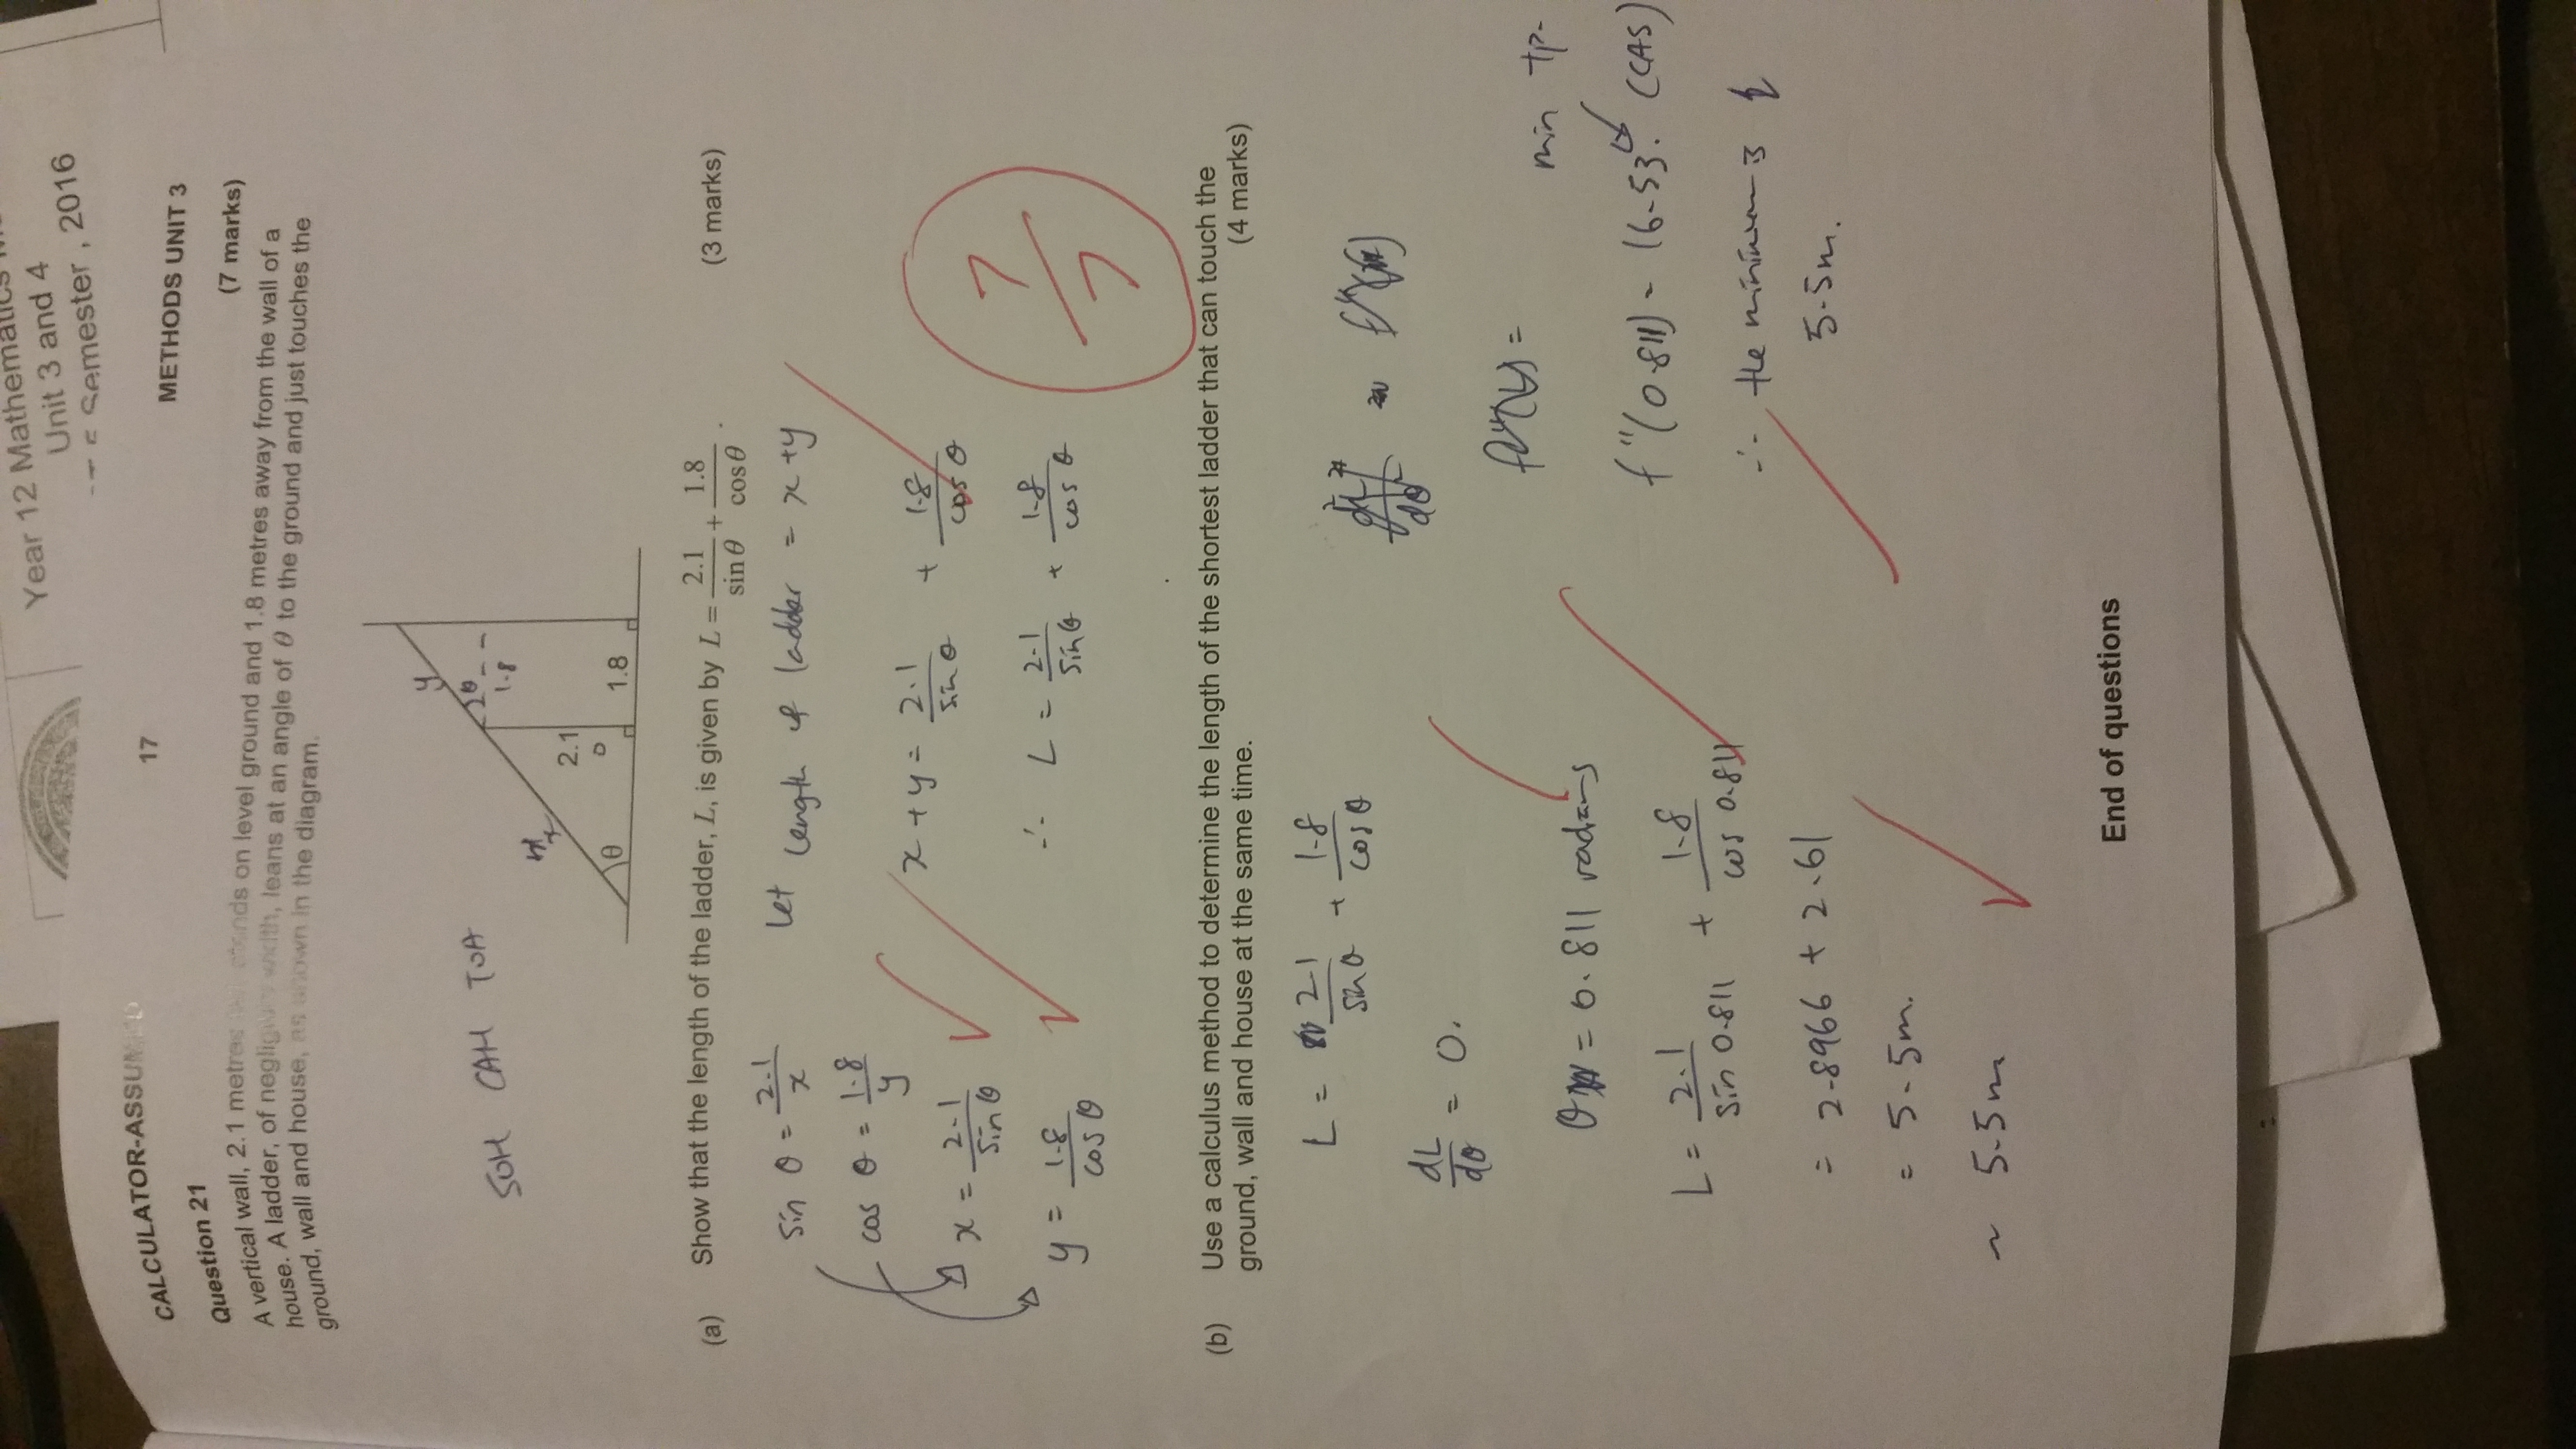 Year 12 Mathematics
Unit 3 and 4
Semester , 2016
CALCULATOR-ASSUMED
17
METHODS UNIT 3
Question 21
(7 marks)
A vertical wall, 2.1 metres stands on level ground and 1.8 metres away from the wall of a
house. A ladder, of negligible width, leans at an angle of θ to the ground and just touches the
ground, wall and house, as shown in the diagram.
SOH CAH TOA
y
θ
1.8
x
2.1
O
θ
1.8
(a) Show that the length of the ladder, L, is given by L = 2.1/sin θ + 1.8/cos θ . (3 marks)
sin θ = 2.1/x
Let length of ladder = x + y
cos θ = 1.8/y
x + y = 2.1/sin θ + 1.8/cos θ
x = 2.1/sin θ
∴ L = 2.1/sin θ + 1.8/cos θ
y = 1.8/cos θ
7/7
(b) Use a calculus method to determine the length of the shortest ladder that can touch the
ground, wall and house at the same time. (4 marks)
L = 2.1/sin θ + 1.8/cos θ
dL/dθ = 0.
θ = 0.811 radians
L = 2.1/sin 0.811 + 1.8/cos 0.811
= 2.8966 + 2.61
= 5.5m.
~ 5.5m
min tp.
f''(0.811) = 16.53. (CAS)
∴ the minimum is
5.5m.
End of questions